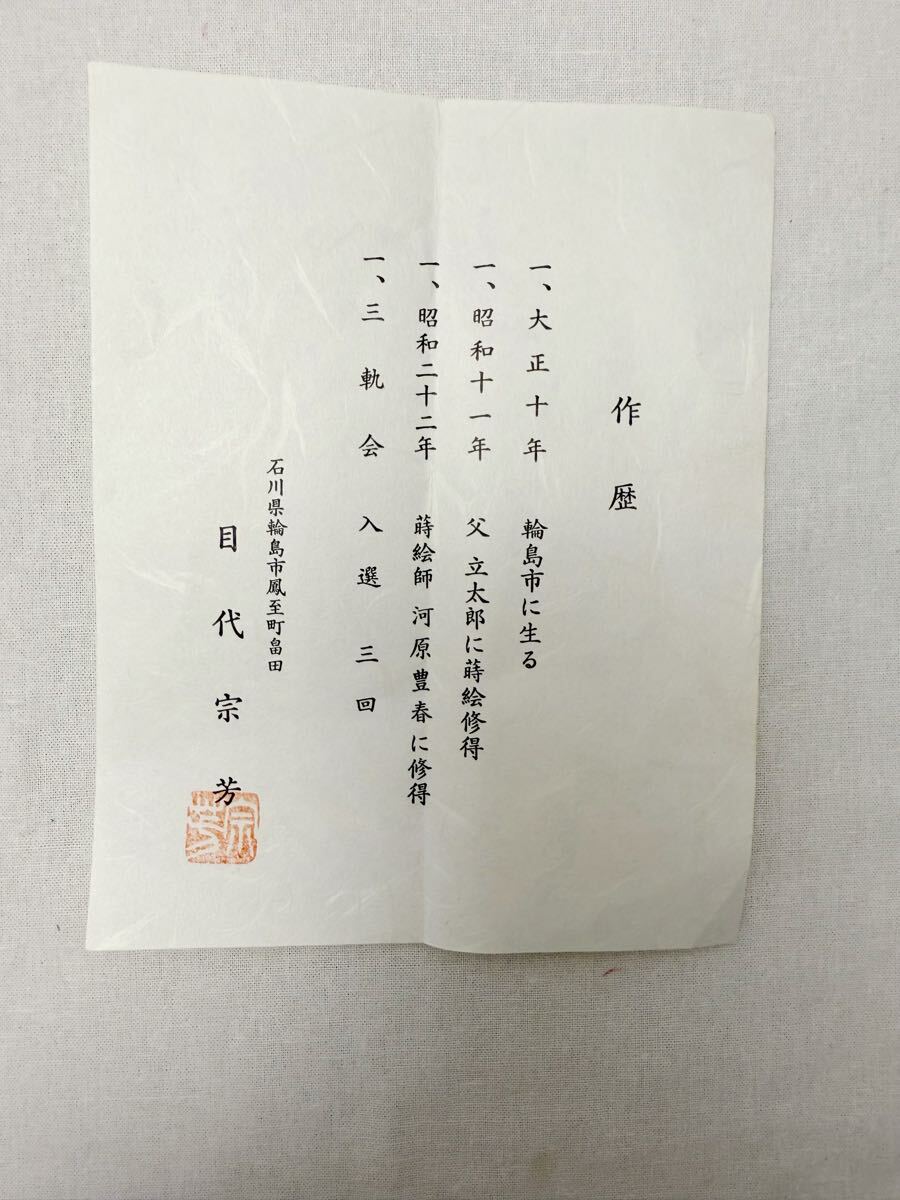 作歴
一、大正十年 輪島市に生る
一、昭和十一年 父 立太郎に蒔絵修得
一、昭和二十二年 蒔絵師 河原豊春に修得
一、三軌会入選三回
石川県輪島市鳳至町畠田
目代宗芳
宗芳